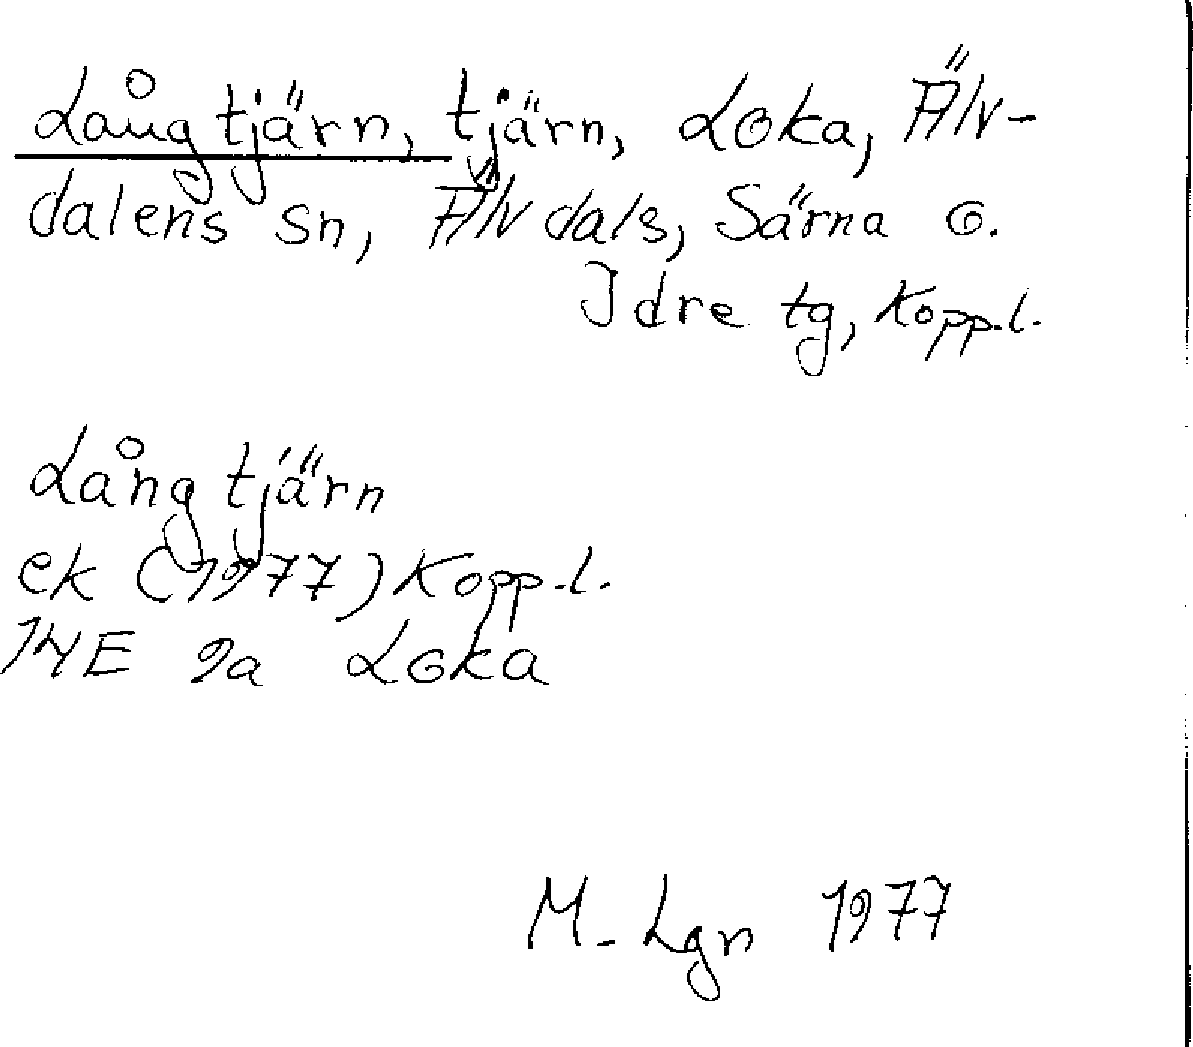 Långtjärn, tjärn, Loka, Älv-
dalens sn, Älvdals, Särna o.
Idre tg, Kopp.l.
Långtjärn
ek (1977) Kopp.l.
14E 9a Loka
M. Lgn 1977